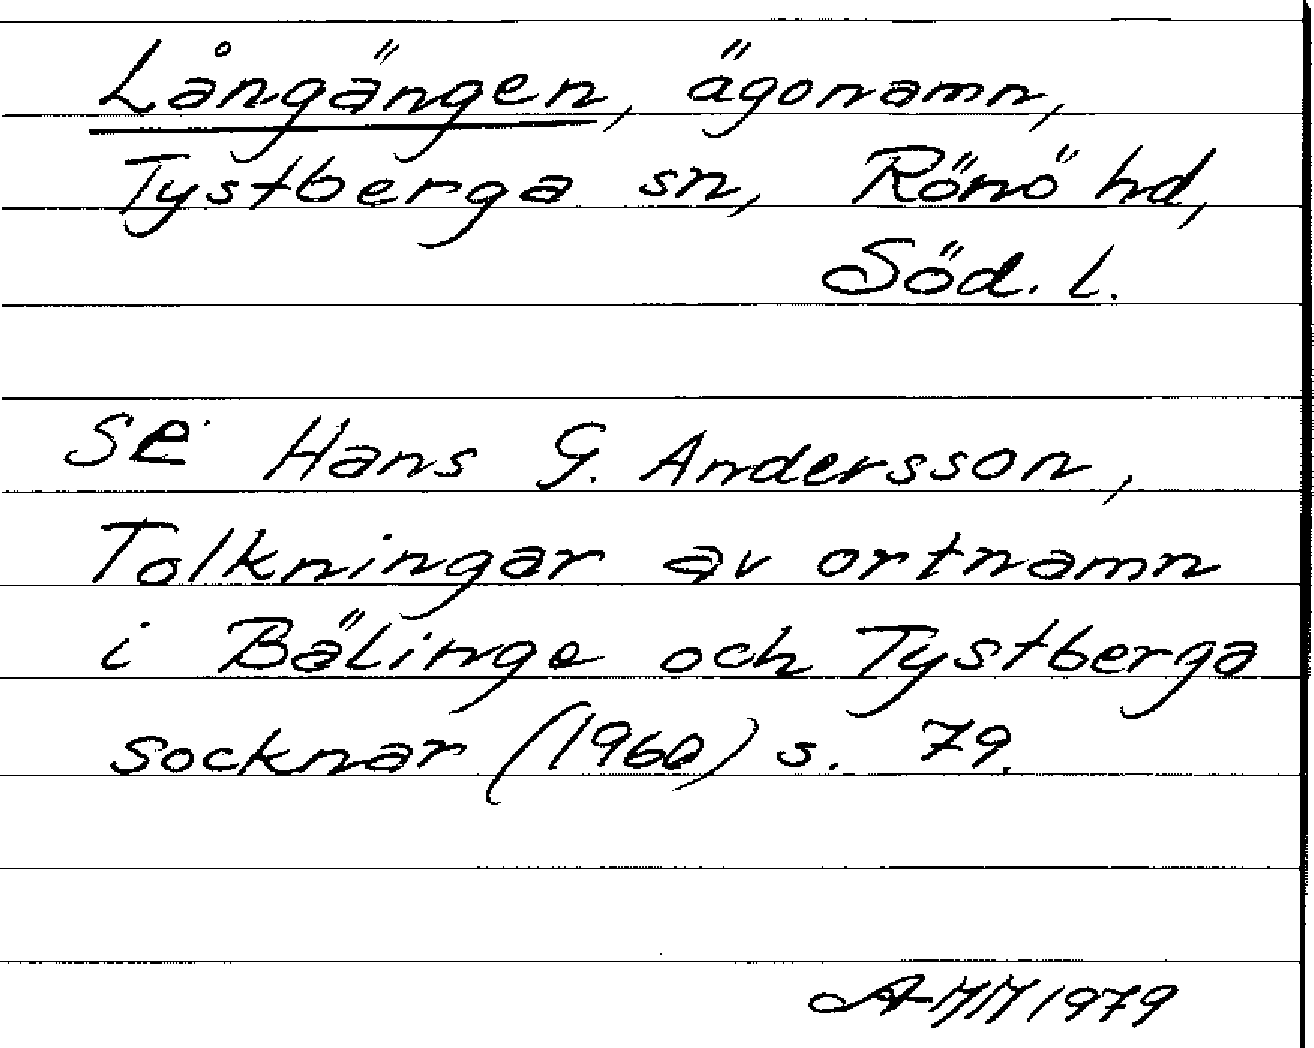 Långängen, ägonamn,
Tystberga sn, Rönö hd,
Söd. l.
se Hans G. Andersson,
Tolkningar av ortnamn
i Bälinge och Tystberga
socknar (1960) s. 79.
A-MM 1979